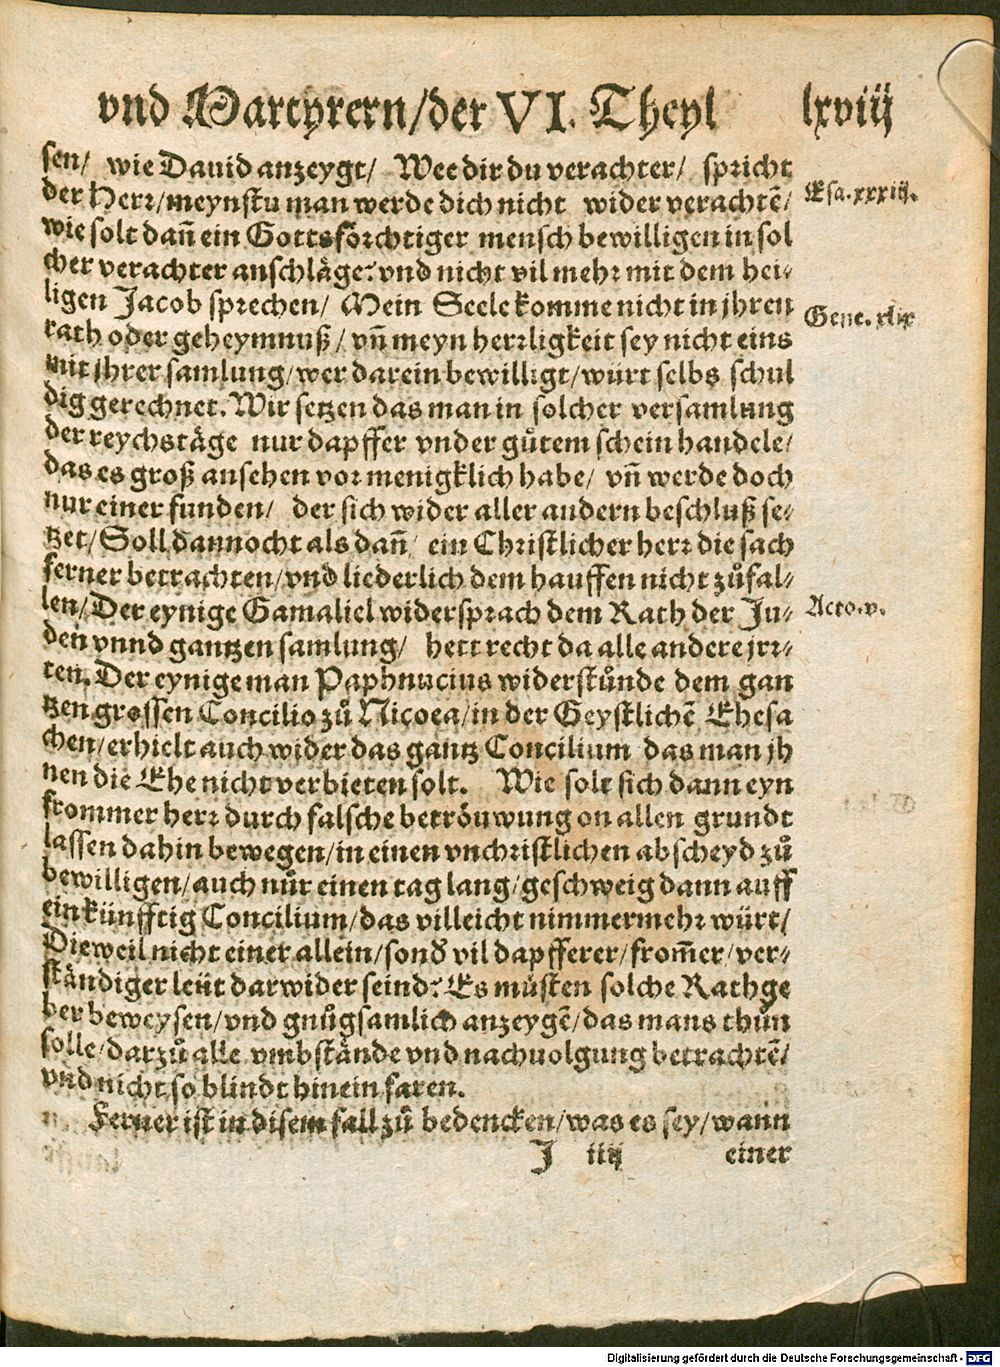 vnd Martyrern/der VI. Theyl lxviij
sen/ wie Dauid anzeygt/ Wee dir du verachter/ spricht
der Herr/meynstu man werde dich nicht wider verachtẽ/
Esa.xxxiij.
wie solt dañ ein Gottsforchtiger mensch bewilligen in sol
cher verachter anschläge? vnd nicht vil mehr mit dem hei-
ligen Jacob sprechen/ Mein Seele komme nicht in jhren
Gene. xlix
rath oder geheymnuß/ vñ meyn herrligkeit sey nicht eins
mit jhrer samlung/wer darein bewilligt/würt selbs schul
dig gerechnet. Wir setzen das man in solcher versamlung
der reychstäge nur dapffer vnder gůtem schein handele/
das es groß ansehen vor menigklich habe/ vñ werde doch
nur einer funden/ der sich wider aller andern beschluß se-
tzet/Soll dannocht als dañ/ ein Christlicher herr die sach
ferner betrachten/vnd liederlich dem hauffen nicht zůfal-
len/Der eynige Gamaliel widersprach dem Rath der Ju-
Acto.v.
den vnnd gantzen samlung/ hett recht da alle andere jrr-
ten. Der eynige man Paphnucius widerstůnde dem gan
tzen grossen Concilio zů Nicoea/in der Geystlichẽ Ehesa
chen/erhielt auch wider das gantz Concilium das man jh
nen die Ehe nicht verbieten solt. Wie solt sich dann eyn
frommer herr durch falsche betröuwung on allen grundt
lassen dahin bewegen/in einen vnchristlichen abscheyd zů
bewilligen/auch nůr einen tag lang/geschweig dann auff
ein künfftig Concilium/das villeicht nimmermehr würt/
Dieweil nicht einer allein/sond̃ vil dapfferer/from̃er/ver-
ständiger leüt darwider seind? Es müsten solche Rathge
ber beweysen/vnd gnůgsamlich anzeygẽ/das mans thůn
solle/darzů alle vmbstände vnd nachuolgung betrachtẽ/
vnd nicht so blindt hinein faren.
Ferner ist in disem fall zů bedencken/was es sey/wann
J iiij einer
Digitalisierung gefördert durch die Deutsche Forschungsgemeinschaft - DFG